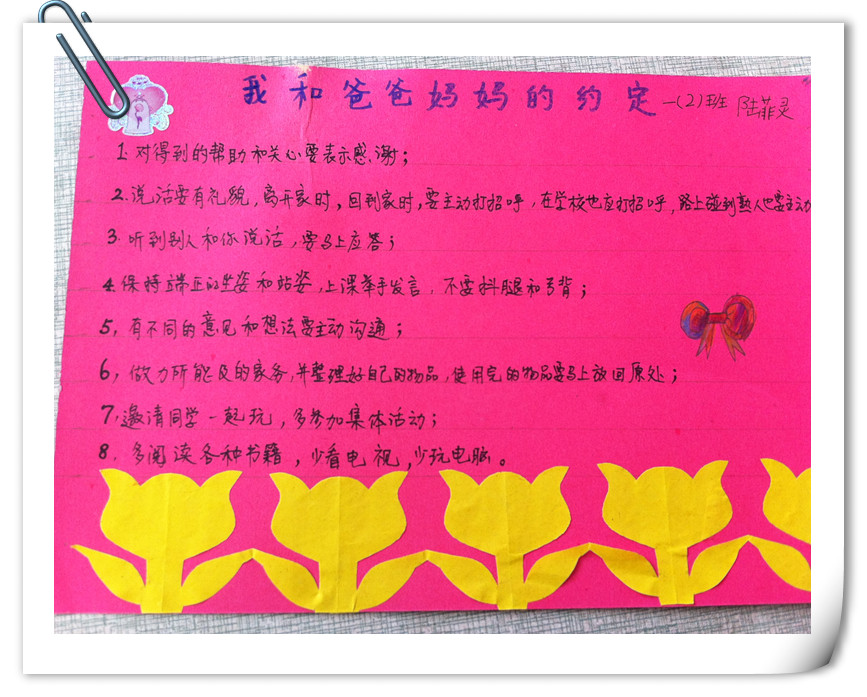 我和爸爸妈妈的约定 一(2)班 陆菲灵
1. 对得到的帮助和关心要表示感谢；
2. 说话要有礼貌，离开家时，回到家时，要主动打招呼，在学校也应打招呼，路上碰到熟人也要主动
3. 听到别人和你说话，要马上应答；
4. 保持端正的坐姿和站姿，上课举手发言，不要抖腿和弓背；
5，有不同的意见和想法要主动沟通；
6，做力所能及的家务，并整理好自己的物品，使用完的物品要马上放回原处；
7，邀请同学一起玩，多参加集体活动；
8. 多阅读各种书籍，少看电视，少玩电脑。